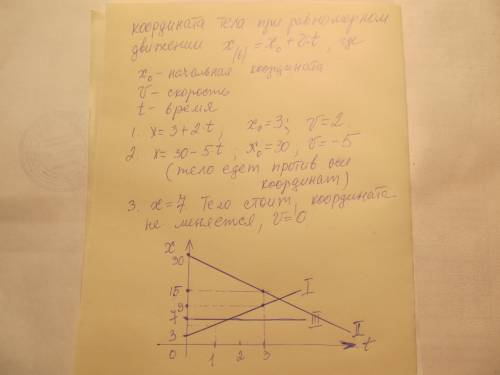 координата тела при равномерном
движении x(t) = x₀ + v·t, где
x₀ - начальная координата
V - скорость
t - время
1. x = 3 + 2·t, x₀ = 3; V = 2
2. x = 30 - 5·t; x₀ = 30, V = -5
(тело едет против оси
координат)
3. x = 7 Тело стоит, координата
не меняется, V = 0
x
30
15
9
7
3
0
1 2 3
t
I
III
II